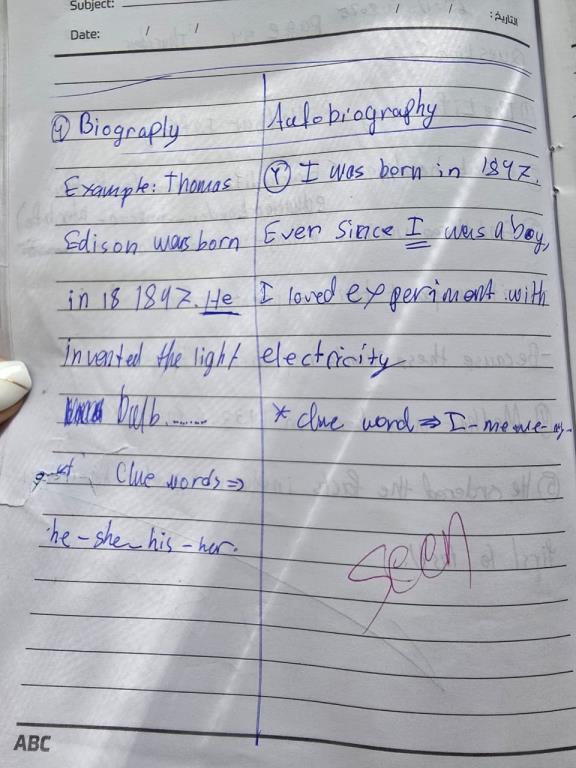 Subject:
Date: / /
/ / التاريخ:
① Biography
Example: Thomas
Edison was born
in 18 1847. He
invented the light
bulb.......
Clue words ⇒
he - she - his - her.
Autobiography
② I was born in 1847.
Ever since I was a boy,
I loved experiment with
electricity
* clue word ⇒ I - me
seen
ABC